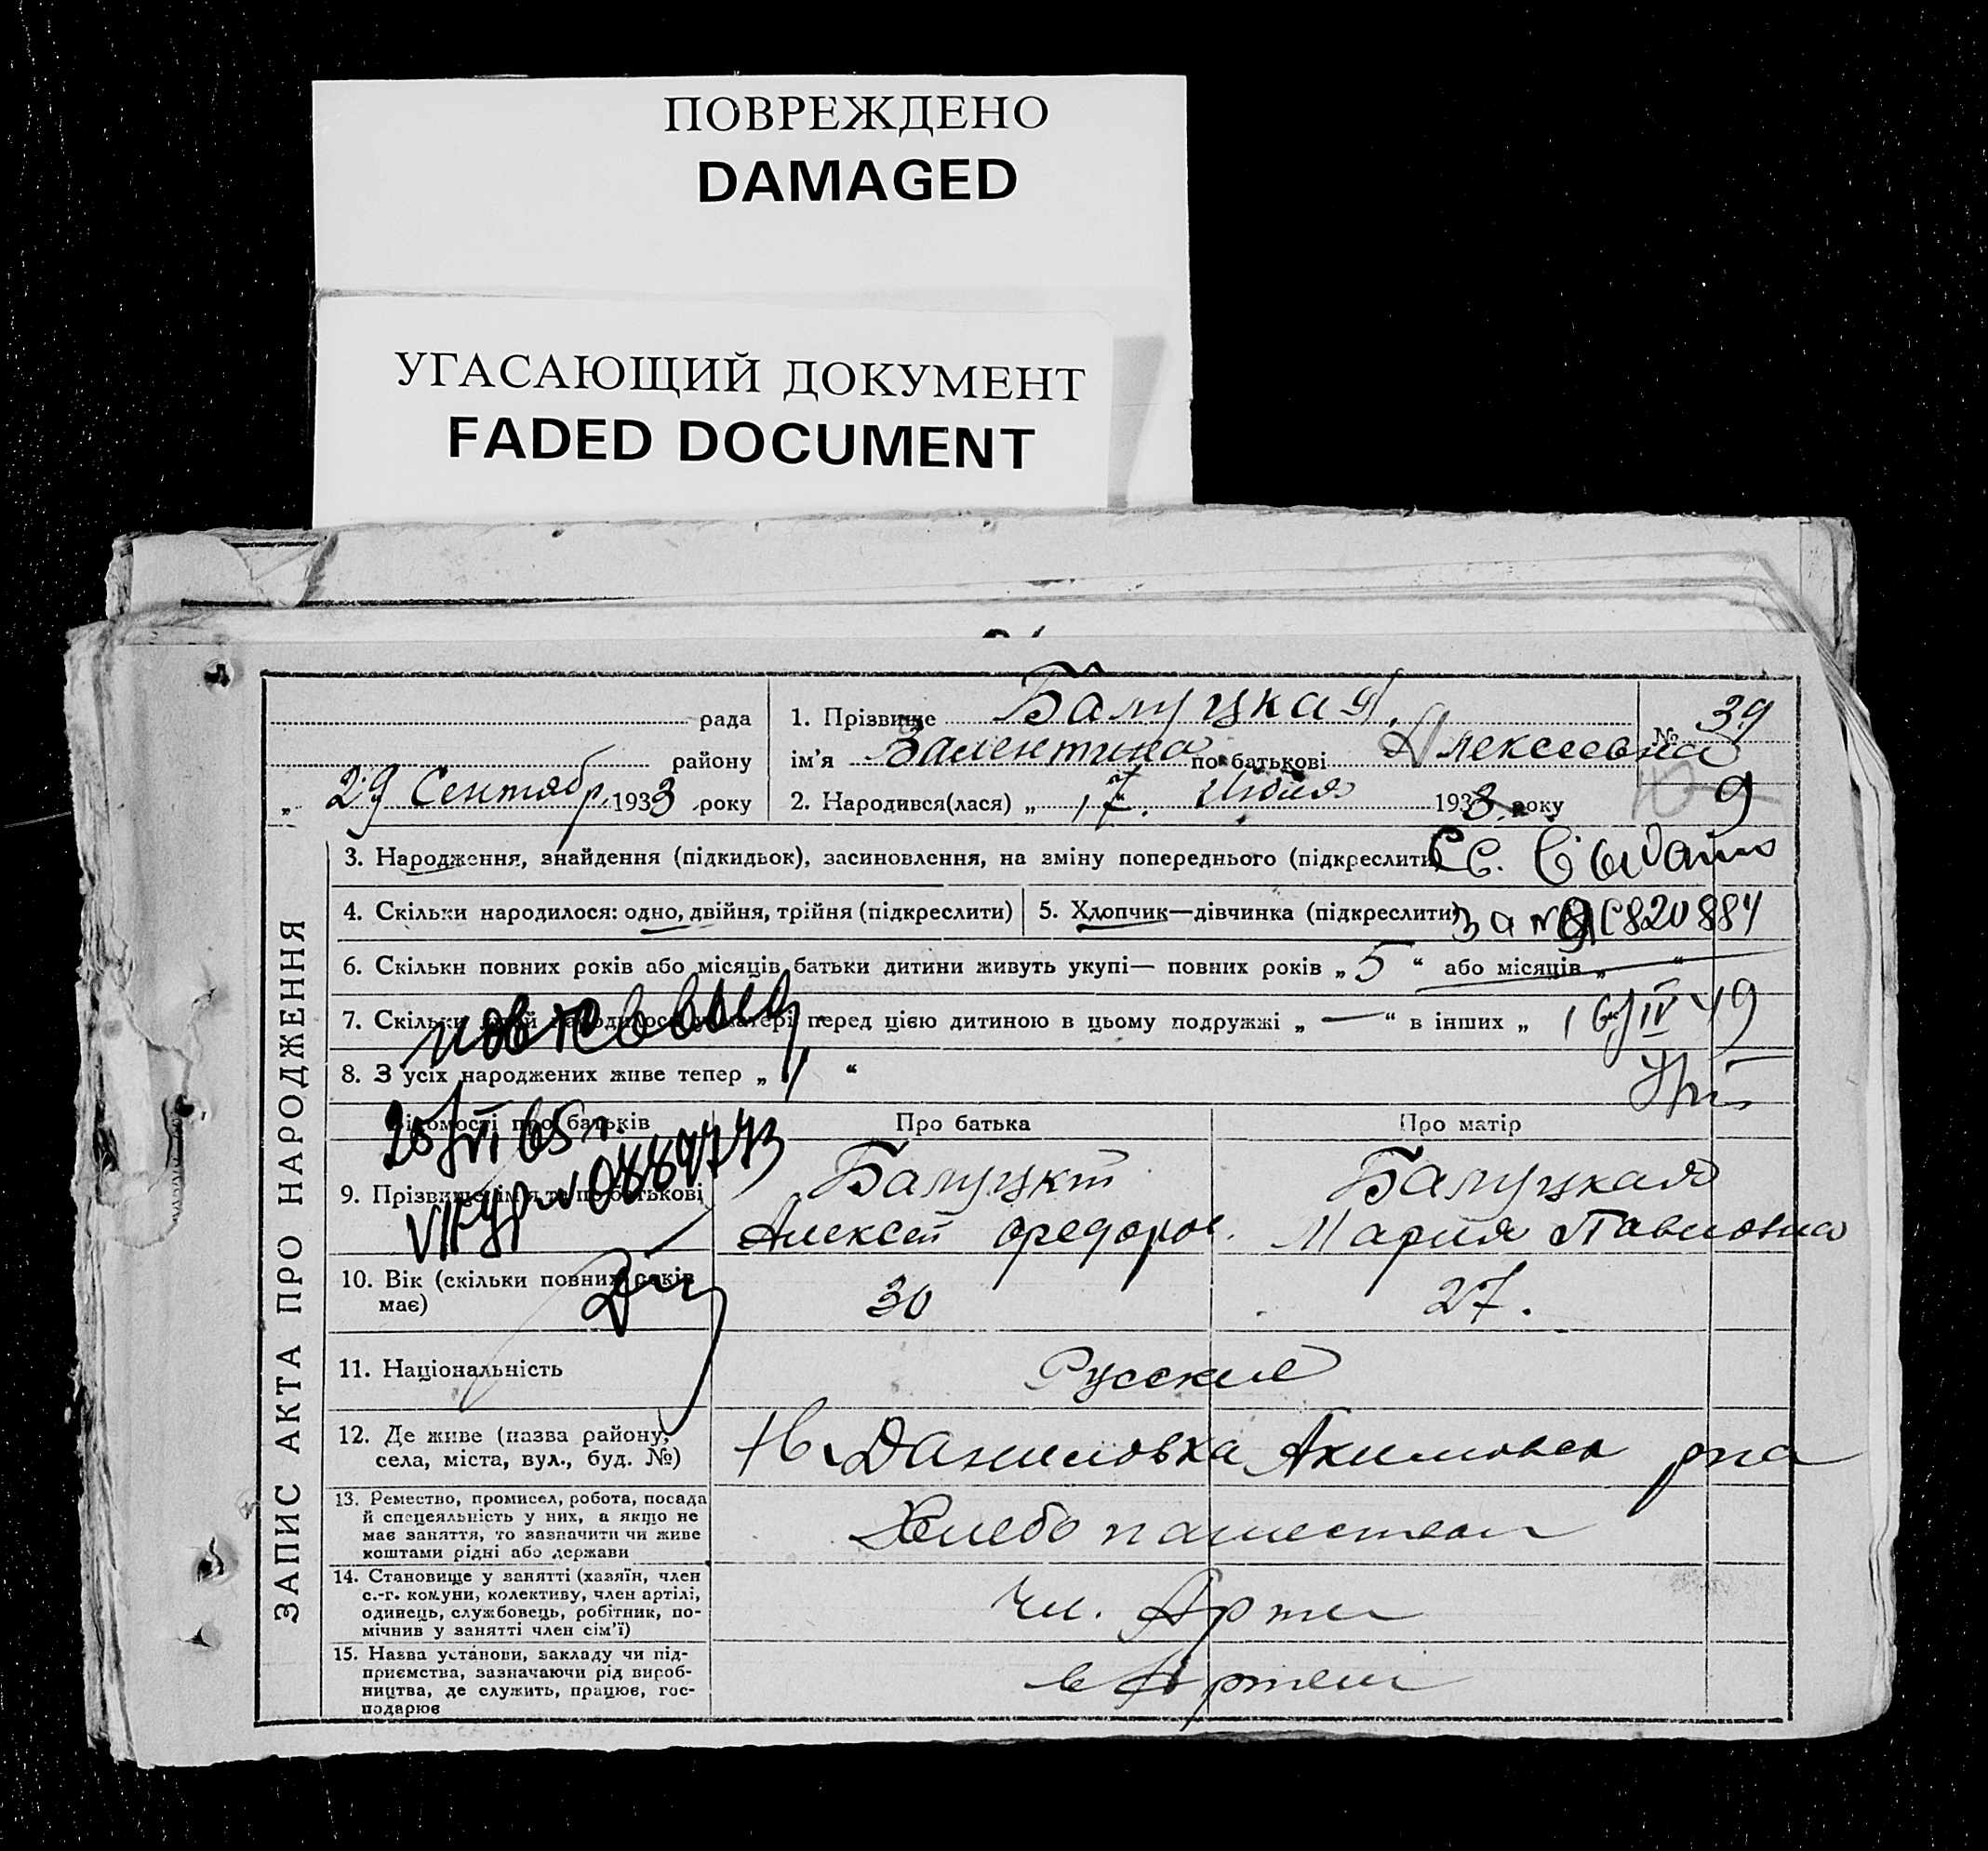 ПОВРЕЖДЕНО
DAMAGED
УГАСАЮЩИЙ ДОКУМЕНТ
FADED DOCUMENT
рада
1. Прізвище Балуцкая.
№ 39
району
ім'я Валентина по батькові Алексеевна
„ 29 Сентябр. 1933 року
2. Народився(лася) „ 17. Июля 1933 року
9
3. Народження, знайдення (підкидьок), засиновлення, на зміну попереднього (підкреслити)
4. Скільки народилося: одно, двійня, трійня (підкреслити)
5. Хлопчик—дівчинка (підкреслити)
за № 820884
6. Скільки повних років або місяців батьки дитини живуть укупі— повних років „ 5 “ або місяців „ — “
7. Скільки перед цією дитиною в цьому подружжі „ — “ в інших „
16/IV 49
8. З усіх народжених живе тепер „ 1 “
Відомості про батьків
Про батька
Про матір
9. Прізвище, ім'я та по батькові
Балуцкий
Алексей Федоров.
Балуцкая
Мария Павловна
10. Вік (скільки повних років
має)
30
27.
11. Національність
Русские
12. Де живе (назва району,
села, міста, вул., буд. №)
Н. Даниловка Акимовск рна
13. Ремество, промисел, робота, посада
й спецеяльність у них, а якщо не
має заняття, то зазначити чи живе
коштами рідні або держави
Хлебопашеством
14. Становище у занятті (хазяїн, член
с.-г. комуни, колективу, член артілі,
одинець, службовець, робітник, по-
мічнив у занятті член сім'ї)
чл. Арте
15. Назва установи, закладу чи під-
приємства, зазначаючи рід вироб-
ництва, де служить, працює, гос-
подарює
в Артели
ЗАПИС АКТА ПРО НАРОДЖЕННЯ